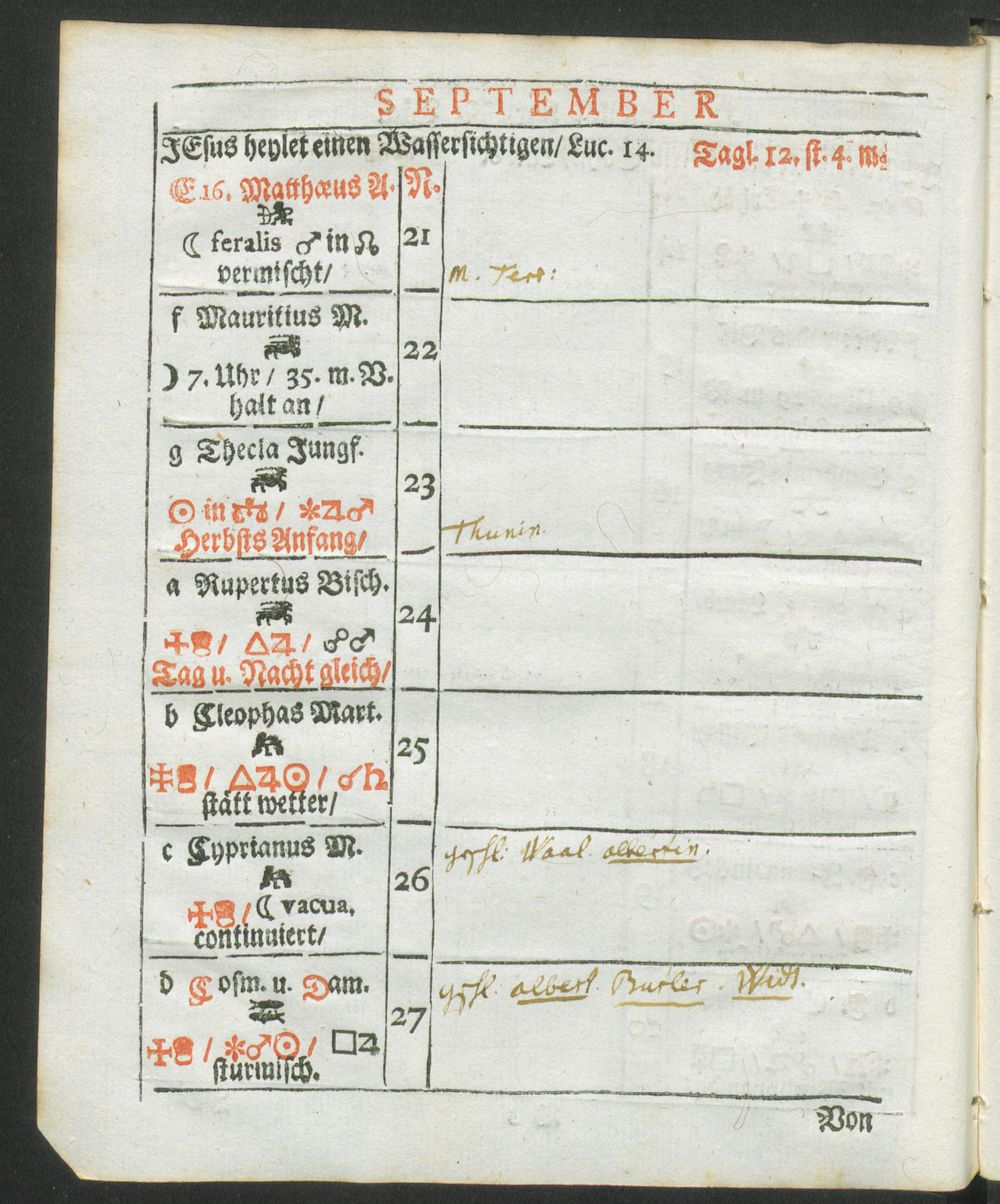 SEPTEMBER
JEsus heylet einen Wassersichtigen/ Luc. 14. Tagl. 12. st. 4. m.
E 16. Matthæus A. N.
☾ feralis ♂ in ☊ 21
vermischt/ M.
f Mauritius M.
22
☽ 7. Uhr / 35. m. V.
halt an /
g Thecla Jungf.
23
☉ in ♎ / ✶♃♂
Herbsts Anfang/ Thunin.
a Rupertus Bisch.
24
✠ / △♃ / ☍♂
Tag u. Nacht gleich/
b Cleophas Mart.
25
✠ / △♃☉ / ☌♄
stätt wetter/
c Cyprianus M. Waal albertin.
26
✠ / ☾ vacua,
continuiert/
d Cosm. u. Dam. albert.
27
✠ / ✶♂☉ / □♃
stürmisch.
Von